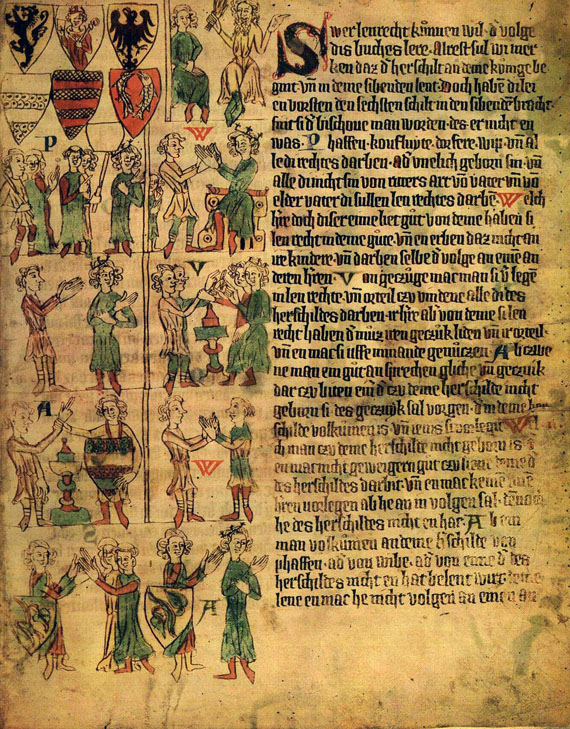 Swer lenrecht kunnen wil · d̓ volge
dis buches lere · Alrest sul wi mer
ken daz d̓ herschilt an deme kunige be
ginnt vn̄ in deme sibenden lent · Doch habē di lei
en vorsten den sechsten schilt in den sibendē bracht
sint si d̓ bischoue man worden · des er nicht en
was · Phaffen · koufluyte · dorfere · wip · vn̄ al
le di rechtes darben · ad̓ vnelich geborn sin · vn̄
alle di nicht sin von ritters art vō vater vn̄ vō
elder vater di sullen len rechtes darbē · Welch
h̓re doch diser eime liet gut von deme haben si
len recht in deme gute · vn̄ en erben daz nicht an
ire kindere · vn̄ darben selbe d̓ volge an eine an
deren h̓ren · Von geczuge mac man si v̓ legē
in len rechte · vn̄ orteil czu vindene alle di des
herschildes darben · ir h̓re ab von deme si len
recht haben d̓ muz iren geczuk liden vn̄ ir orteil ·
vn̄ en mac si uffe nimande genuczen · Ab czwe
ne man ein gut an sprechen gliche vn̄ geczuk
dar czu biten
geborn si des geczuk sal vorgen · d̓ in deme her
schilde volkumen is · vn̄ ienis si vorlegit · Wil
ch man czu deme herschilde nicht geborn is
en mac nicht geweigern gut czu
des herschildes darbit · vn̄ en mac keine
h̓ren vorlegen ab he an in volgen sal ·
he des herschildes nicht en hat · Ab ein
man volkumen an deme h̓schilde von
phaffen · ad̓ von wibe · ad̓ von eime d̓ des
herschildes nicht en hat belent wirt
lene en mac he nicht volgen an einen an
P
W
V
A
W
S
A